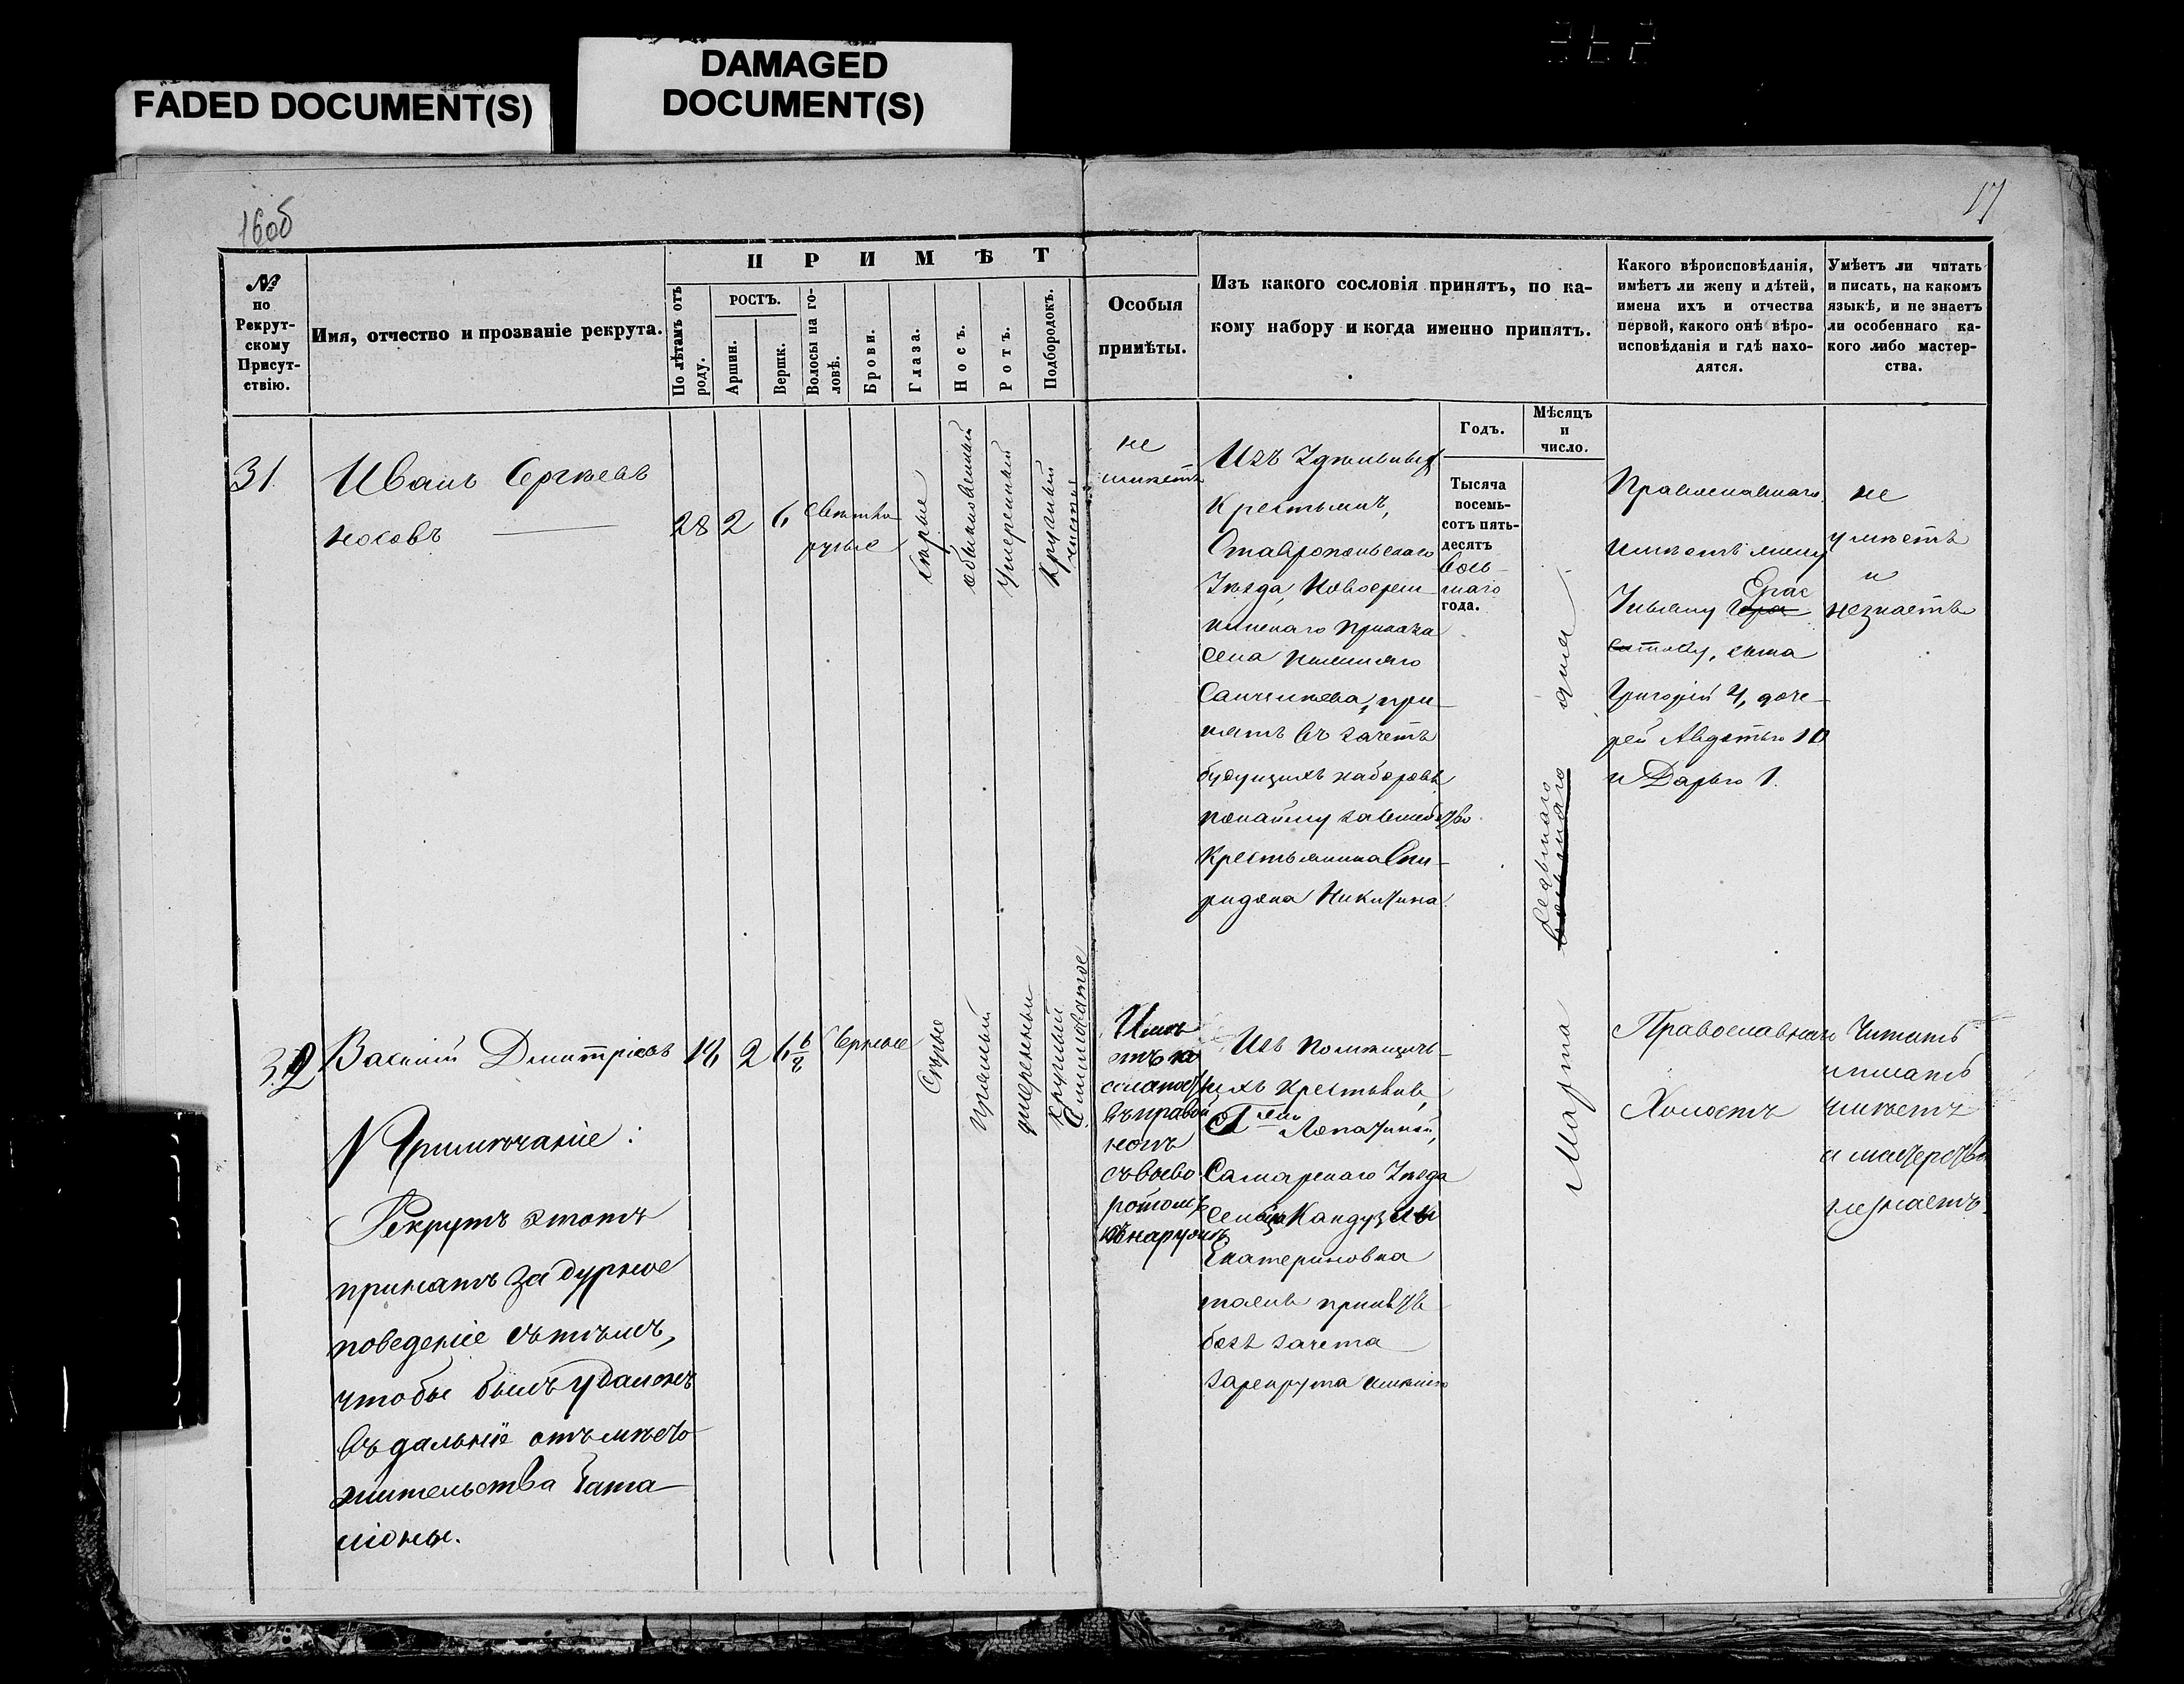 FADED DOCUMENT(S)
DAMAGED
DOCUMENT(S)
16об
17
№
по
Рекрут-
скому
Присут-
ствію.
Имя, отчество и прозваніе рекрута.
ПРИМѢТ
По лѣтамъ отъ
роду.
РОСТЪ.
Аршин.
Вершк.
Волосы на го-
ловѣ.
Брови.
Глаза.
Носъ.
Ротъ.
Подбородокъ.
Особыя
примѣты.
Изъ какого сословія принятъ, по ка-
кому набору и когда именно принятъ.
Годъ.
Мѣсяцъ
и
число.
Какого вѣроисповѣданія,
имѣетъ ли жену и дѣтей,
имена ихъ и отчество
первой, какого онѣ вѣро-
исповѣданія и гдѣ нахо-
дятся.
Умѣетъ ли читать
и писать, на какомъ
языкѣ, и не знаетъ
ли особеннаго ка-
кого либо мастер-
ства.
31.
Иванъ Сергѣевъ
Носовъ
28
2
6
Светло
русые
сѣрые
обыкновенный
Умеренный
Круглый
чистое
не
имѣетъ
Изъ Удѣльныхъ
Крестьянъ,
Ставропольскаго
Уѣзда, Новосерем-
Приказа
села
Санчелѣева, при-
нятъ въ зачетъ
будущихъ наборовъ
понайму
Крестьянина Спи-
ридона Никитина
Тысяча
восемь-
сотъ пять-
десятъ
вось-
маго
года.
Марта
седьмаго
дня
Православнаго
имѣетъ жену
Ульяну Ерас
товну, сына
Григорій 4, доче-
рей Авдотью 10
и Дарью 1.
не
умѣетъ
и
незнаетъ
32
Василій Дмитріевъ
18
2
6 6/8
Черные
Сѣрые
Прямый
умеренный
Круглый
Имѣ
етъ на
въ правой
кнаружи
Изъ Помѣщичь-
ихъ крестьянъ,
Г-жи Лопатиной,
Самарскаго Уѣзда
Сельца Кандузлы
Екатериновка
тожъ принятъ
безъ зачета
зарекрута
Православнаго
Холостъ
Читать
и писать
умѣетъ
а мастерства
незнаетъ.
Примѣчаніе:
Рекрутъ этотъ
принятъ за дурное
поведеніе съ тѣмъ,
чтобы былъ удаленъ
въ дальніе отъ мѣсто
жительства бата-
ліоны.